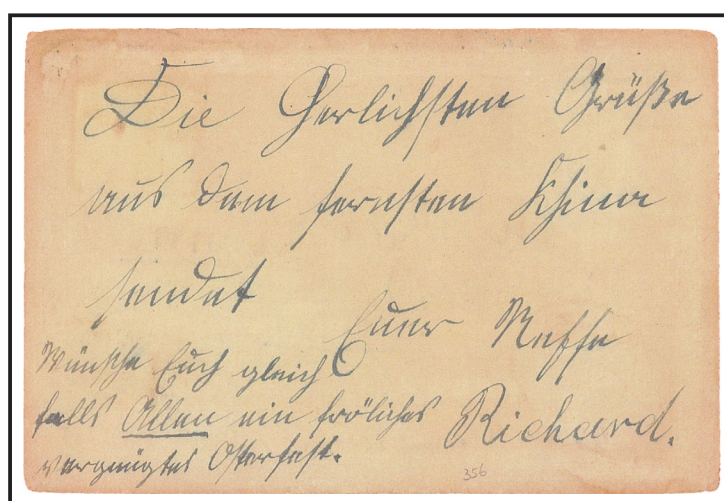 Die Herlichsten Grüße
aus dem fernsten China
sendet
Euer Neffe
Richard.
Wünsche Euch gleich
falls Allen ein fröliches
vergnügtes Osterfest.
356